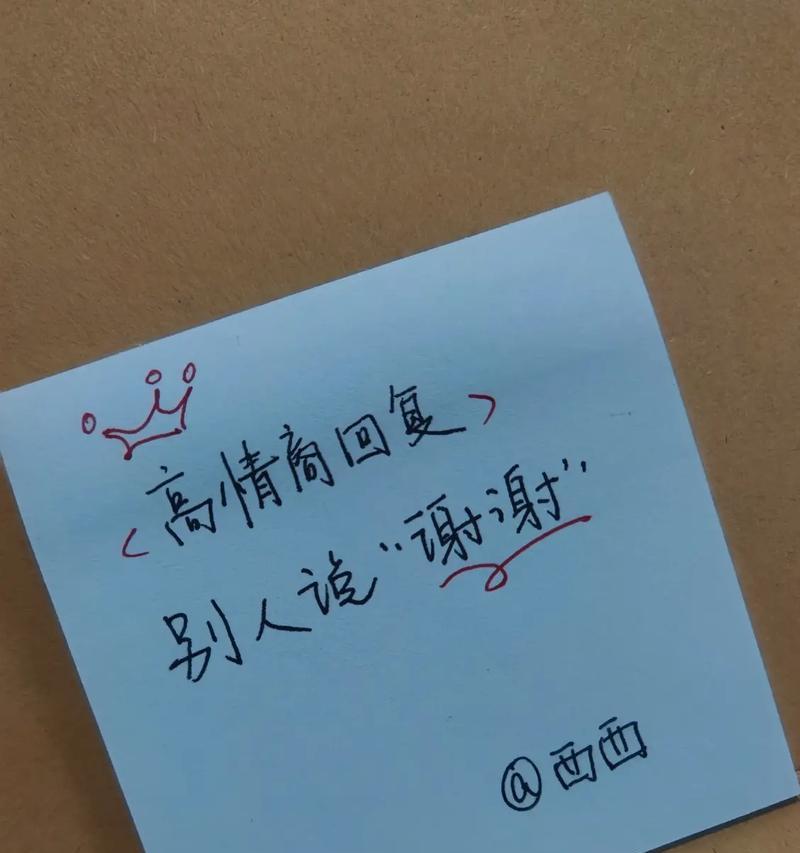 <高情商回复>
别人说“谢谢”
@西西